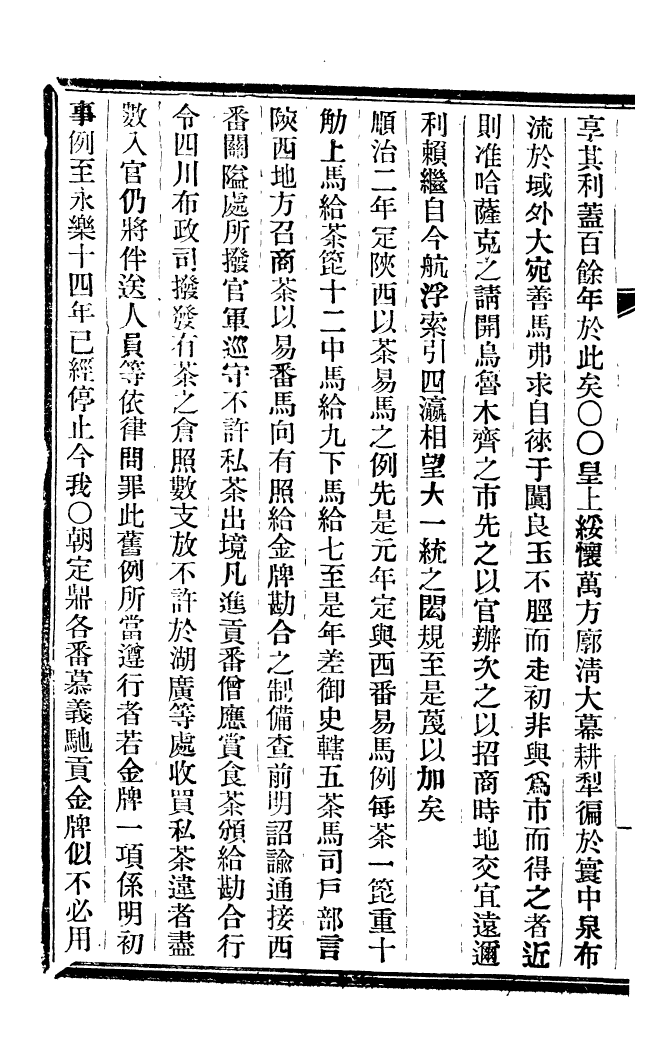 享其利蓋百餘年於此矣〇〇皇上綏懷萬方廓清大幕耕犁徧於寰中泉布
流於域外大宛善馬弗求自徠于闐良玉不脛而走初非與爲市而得之者近
則准哈薩克之請開烏魯木齊之市先之以官辦次之以招商時地交宜遠邇
利賴繼自今航浮索引四瀛相望大一統之閎規至是蔑以加矣
順治二年定陝西以茶易馬之例先是元年定與西番易馬例每茶一箆重十
觔上馬給茶箆十二中馬給九下馬給七至是年差御史轄五茶馬司戸部言
陝西地方召商茶以易番馬向有照給金牌勘合之制備查前明詔諭通接西
番關隘處所撥官軍巡守不許私茶出境凡進貢番僧應賞食茶頒給勘合行
令四川布政司撥發有茶之倉照數支放不許於湖廣等處收買私茶違者盡
數入官仍將伴送人員等依律問罪此舊例所當遵行者若金牌一項係明初
事例至永樂十四年已經停止今我〇朝定鼎各番慕義馳貢金牌似不必用